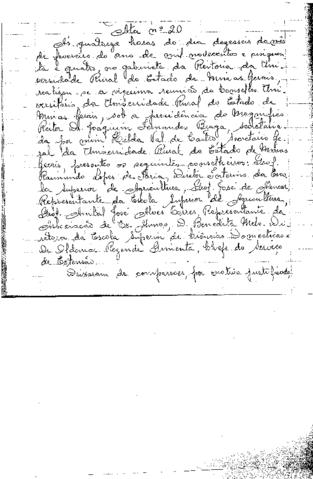 Ata nº 20
Às quatorze horas do dia dezesseis do mês
de fevereiro do ano de mil novecentos e cinquen
ta e quatro, no gabinete da Reitoria da Uni
versidade Rural do Estado de Minas Gerais,
realizou-se a reunião do Conselho Uni
versitário da Universidade Rural do Estado de
Minas Gerais, sob a presidência do Magnífico
Reitor Dr. Joaquim Fernandes Braga, secretaria
da por mim Zilda Val de Castro secretária ge
ral da Universidade Rural do Estado de Minas
Gerais presentes os seguintes conselheiros: Prof.
Raimundo Lopes de Faria, Diretor Interino da Esco
la Superior de Agricultura, Prof. José de Alencar,
Representante da Escola Superior de Agricultura,
Prof. Aníbal José Alves Torres Representante da
Associação de Ex-Alunos, D. Benedita Melo, Di
retora da Escola Superior de Ciências Domésticas e
Dr. Rezende Pimenta, Chefe do Serviço
de Extensão.
Deixaram de comparecer, por motivo justificado